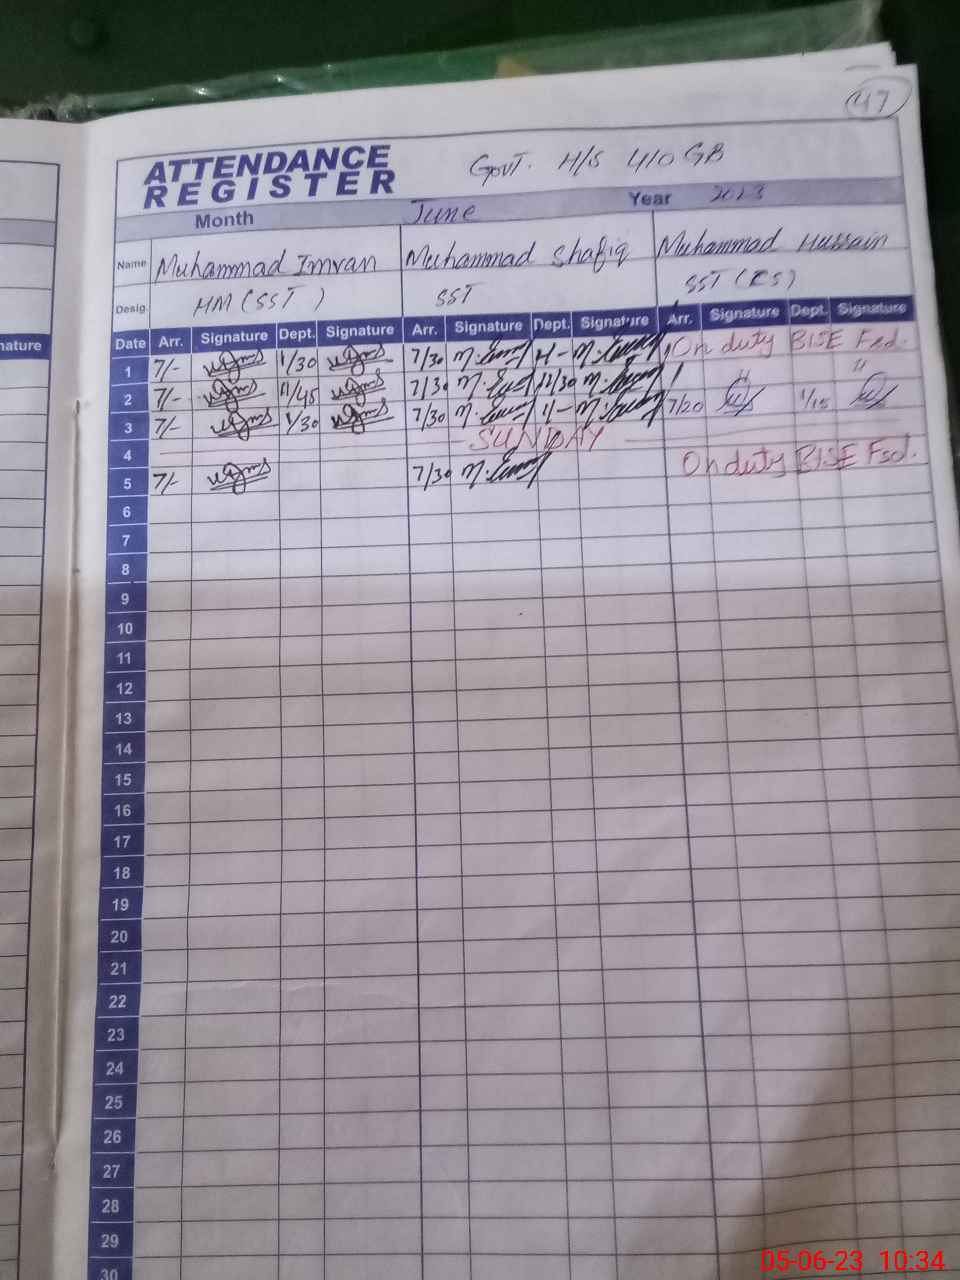 47
ATTENDANCE
REGISTER
Govt. H/S 410 GB
Month June Year 2023
Name Muhammad Imran Muhammad Shafiq Muhammad Hussain
Desig. HM (SST) SST SST (CS)
nature
Date Arr. Signature Dept. Signature Arr. Signature Dept. Signature Arr. Signature Dept. Signature
1 7/- 1/30 7/30 On duty BISE Fsd.
2 7/- 11/45 7/30 11/30 " "
3 7/- 1/30 7/30 7/20 1/15
4 SUNDAY
5 7/- 7/30 On duty BISE Fsd.
6
7
8
9
10
11
12
13
14
15
16
17
18
19
20
21
22
23
24
25
26
27
28
29
30
05-06-23 10:34